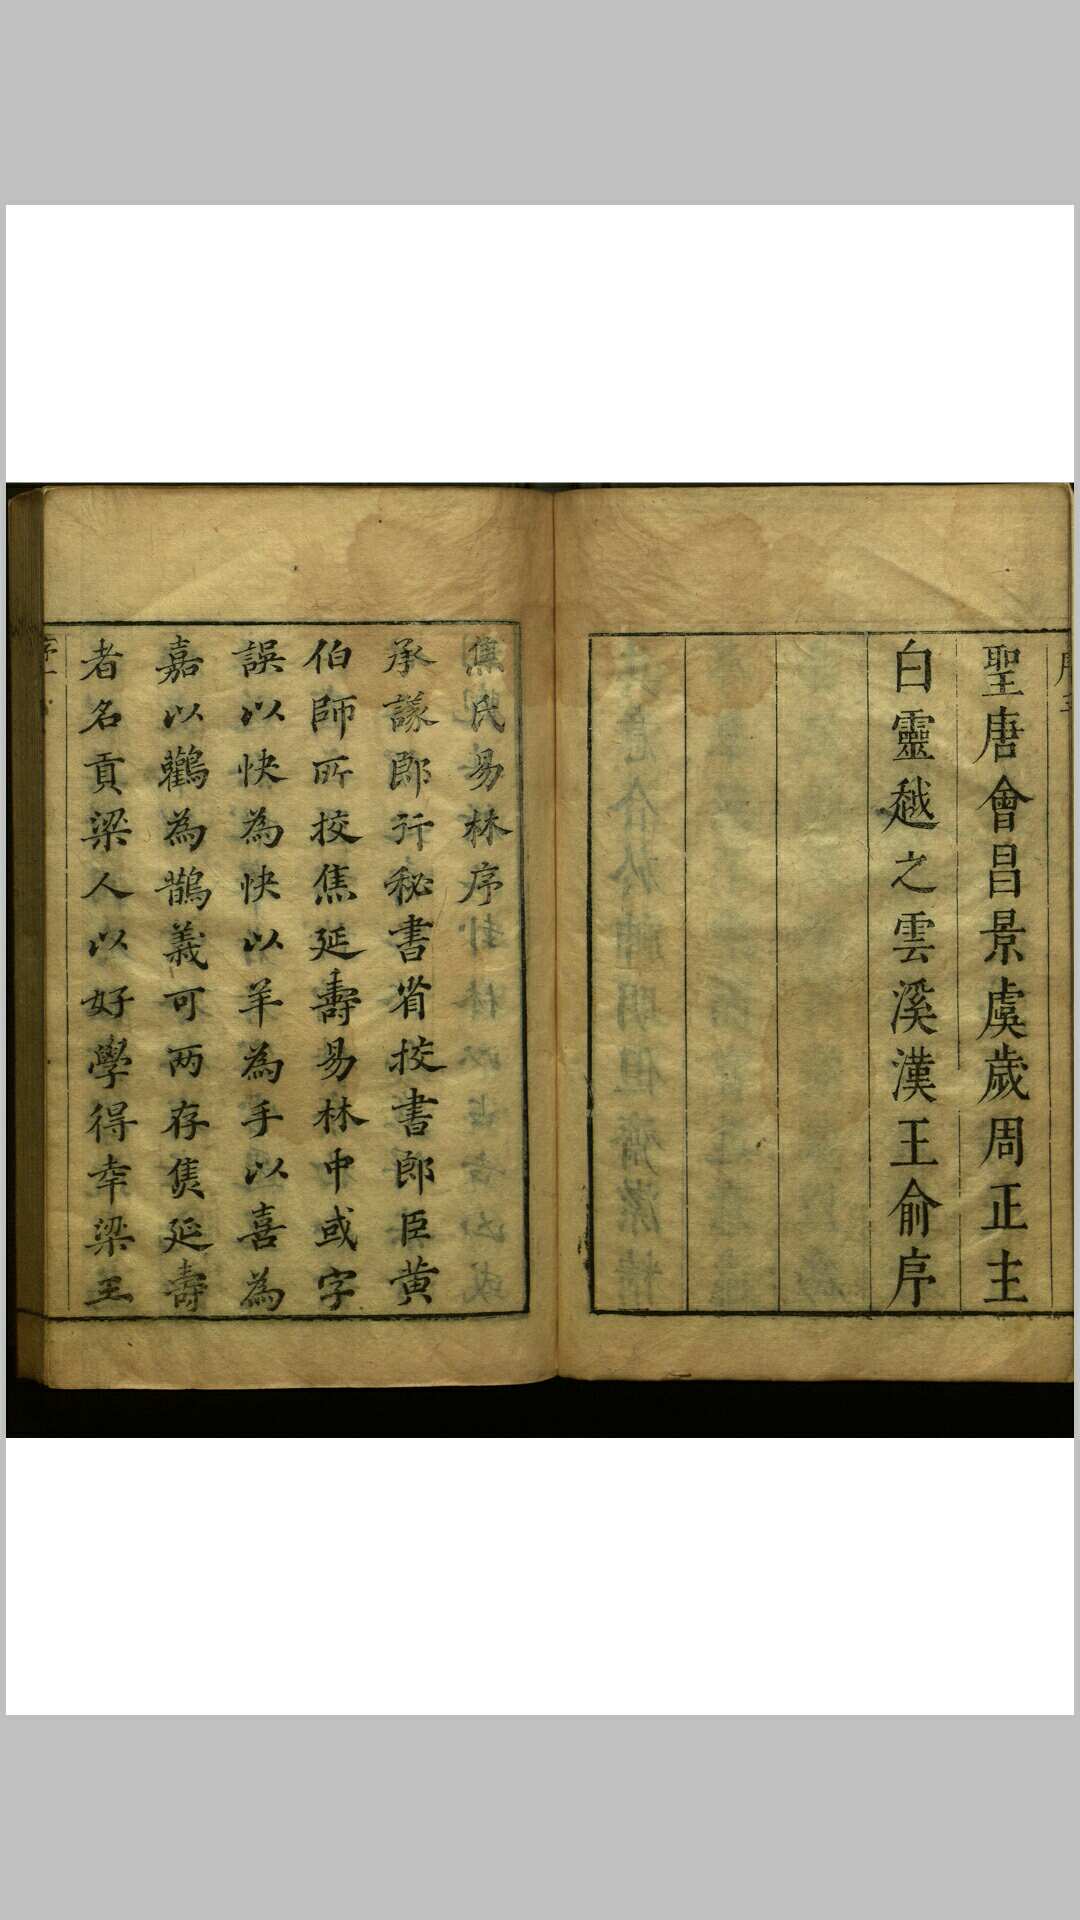 聖唐會昌景虞歲周正主
白靈越之雲溪漢王俞序
焦氏易林序
承議郎行秘書省挍書郎臣黃
伯師所挍焦延壽易林中或字
誤以快為快以羊為手以喜為
嘉以鸛為鵲義可两存焦延壽
者名貢梁人以好學得幸梁王
序一